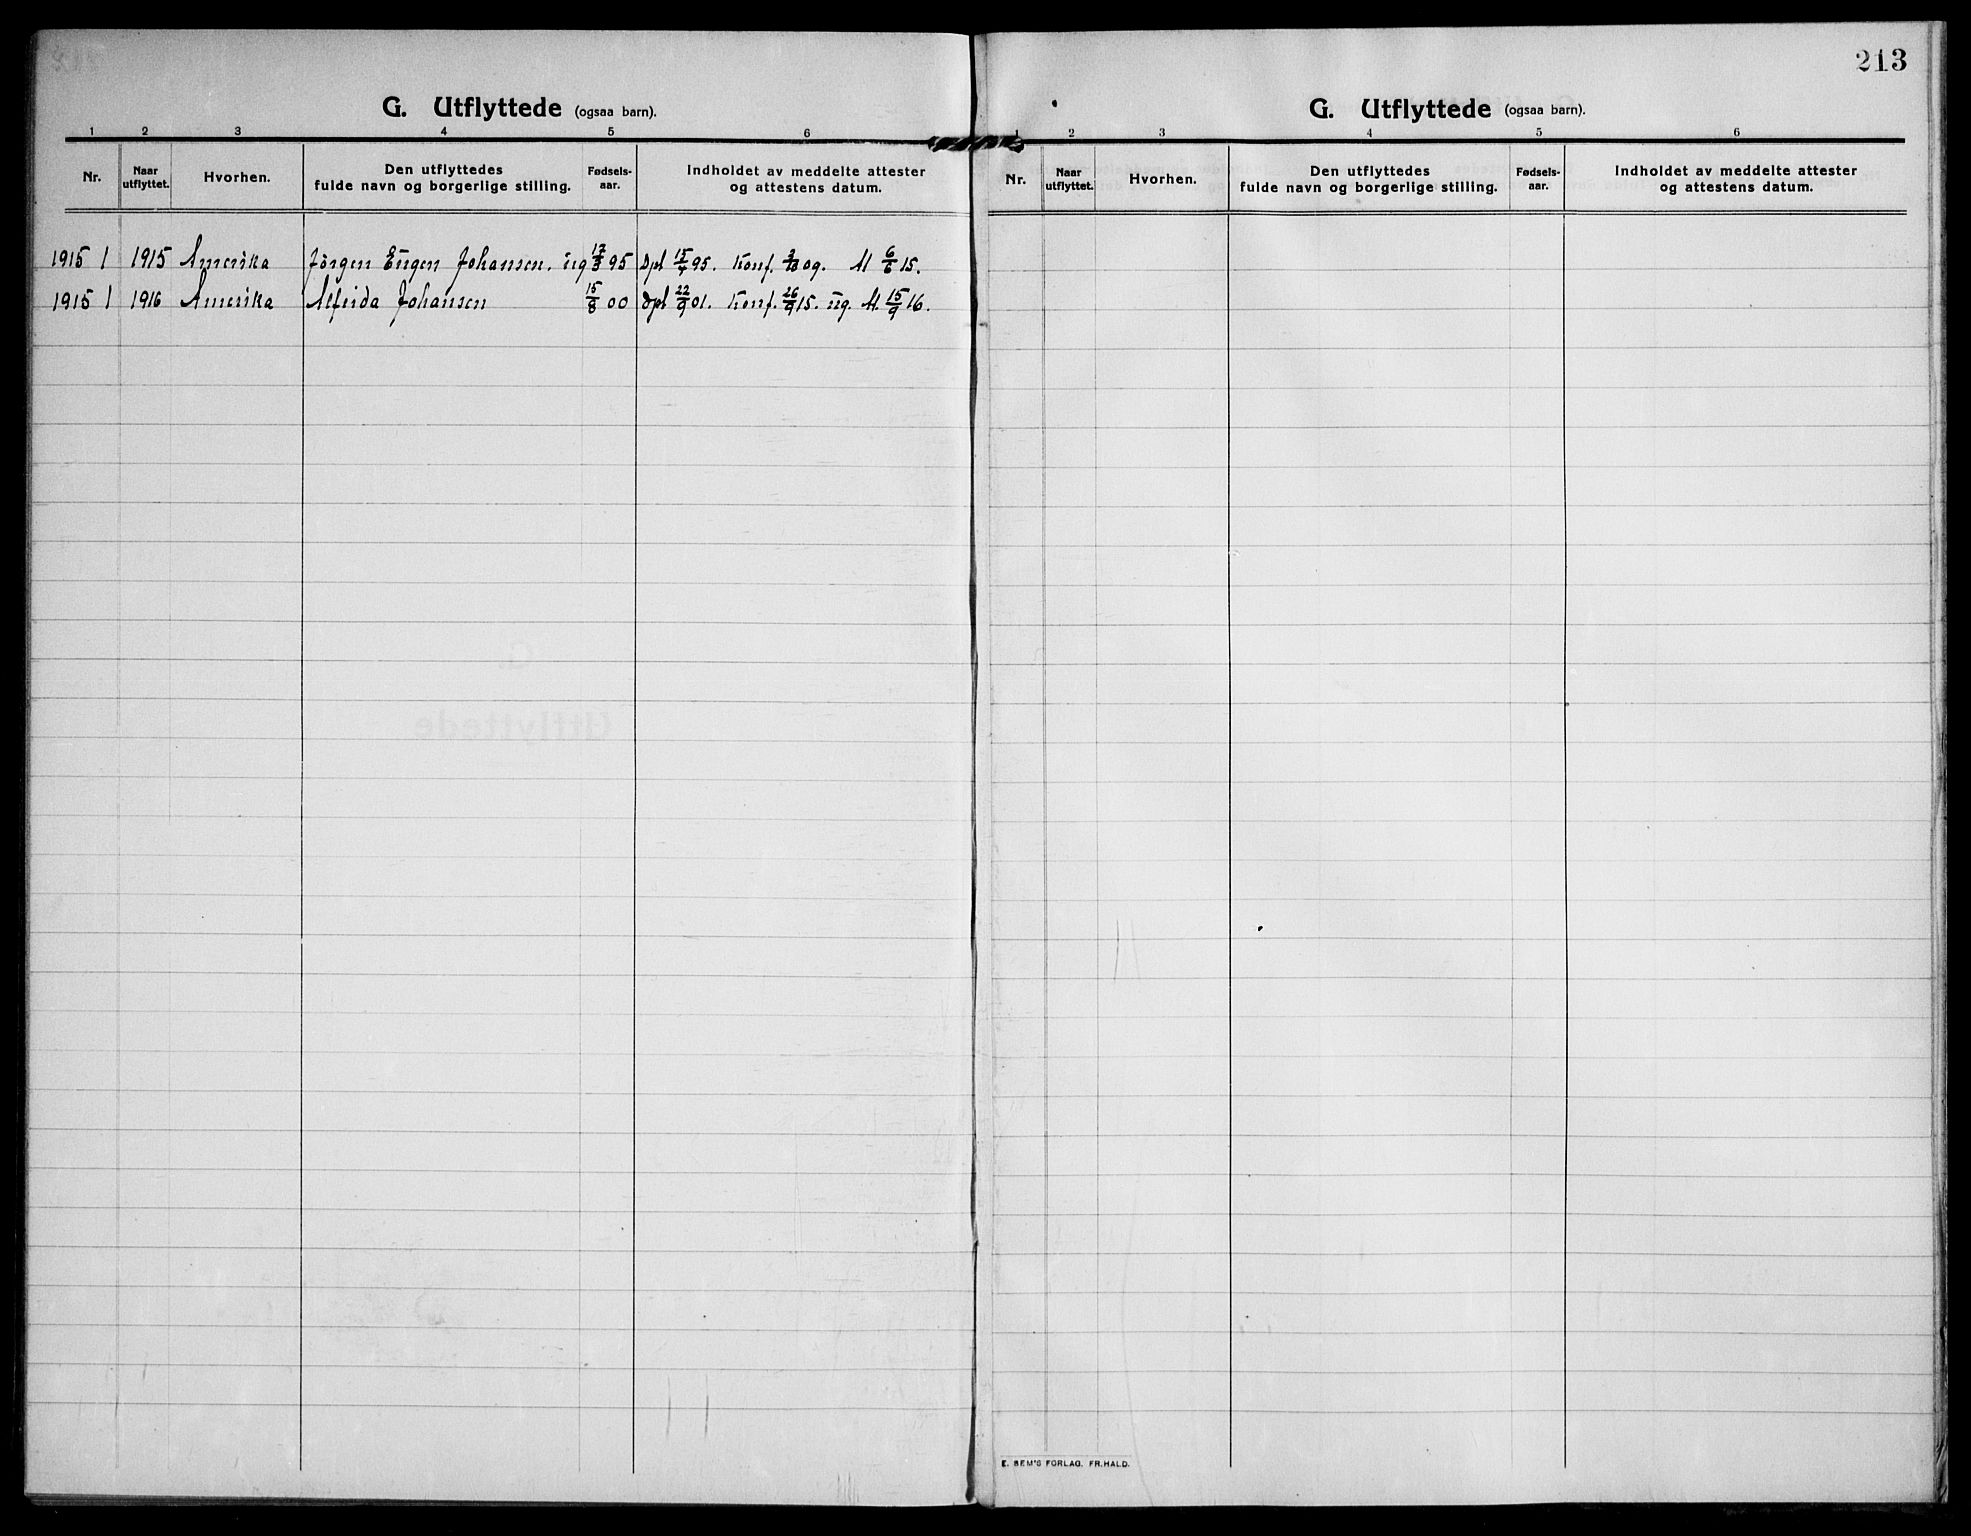 G. Utflyttede (ogsaa barn).
1 2 3 4 5 6
Nr. Naar utflyttet. Hvorhen. Den utflyttedes fulde navn og borgerlige stilling. Fødsels-aar. Indholdet av meddelte attester og attestens datum.
1915 1 1915 Amerika Jörgen Eugen Johansen. ug 12/3 95 Dpt 15/4 95. Konf. 3/10 09. At 6/6 15.
1915 1 1916 Amerika Alfrida Johansen 15/8 00 Dpt 22/9 01. Konf. 26/9 15. ug. At. 15/9 16.
213
G. Utflyttede (ogsaa barn).
1 2 3 4 5 6
Nr. Naar utflyttet. Hvorhen. Den utflyttedes fulde navn og borgerlige stilling. Fødsels-aar. Indholdet av meddelte attester og attestens datum.
E. SEM'S FORLAG. FR.HALD.